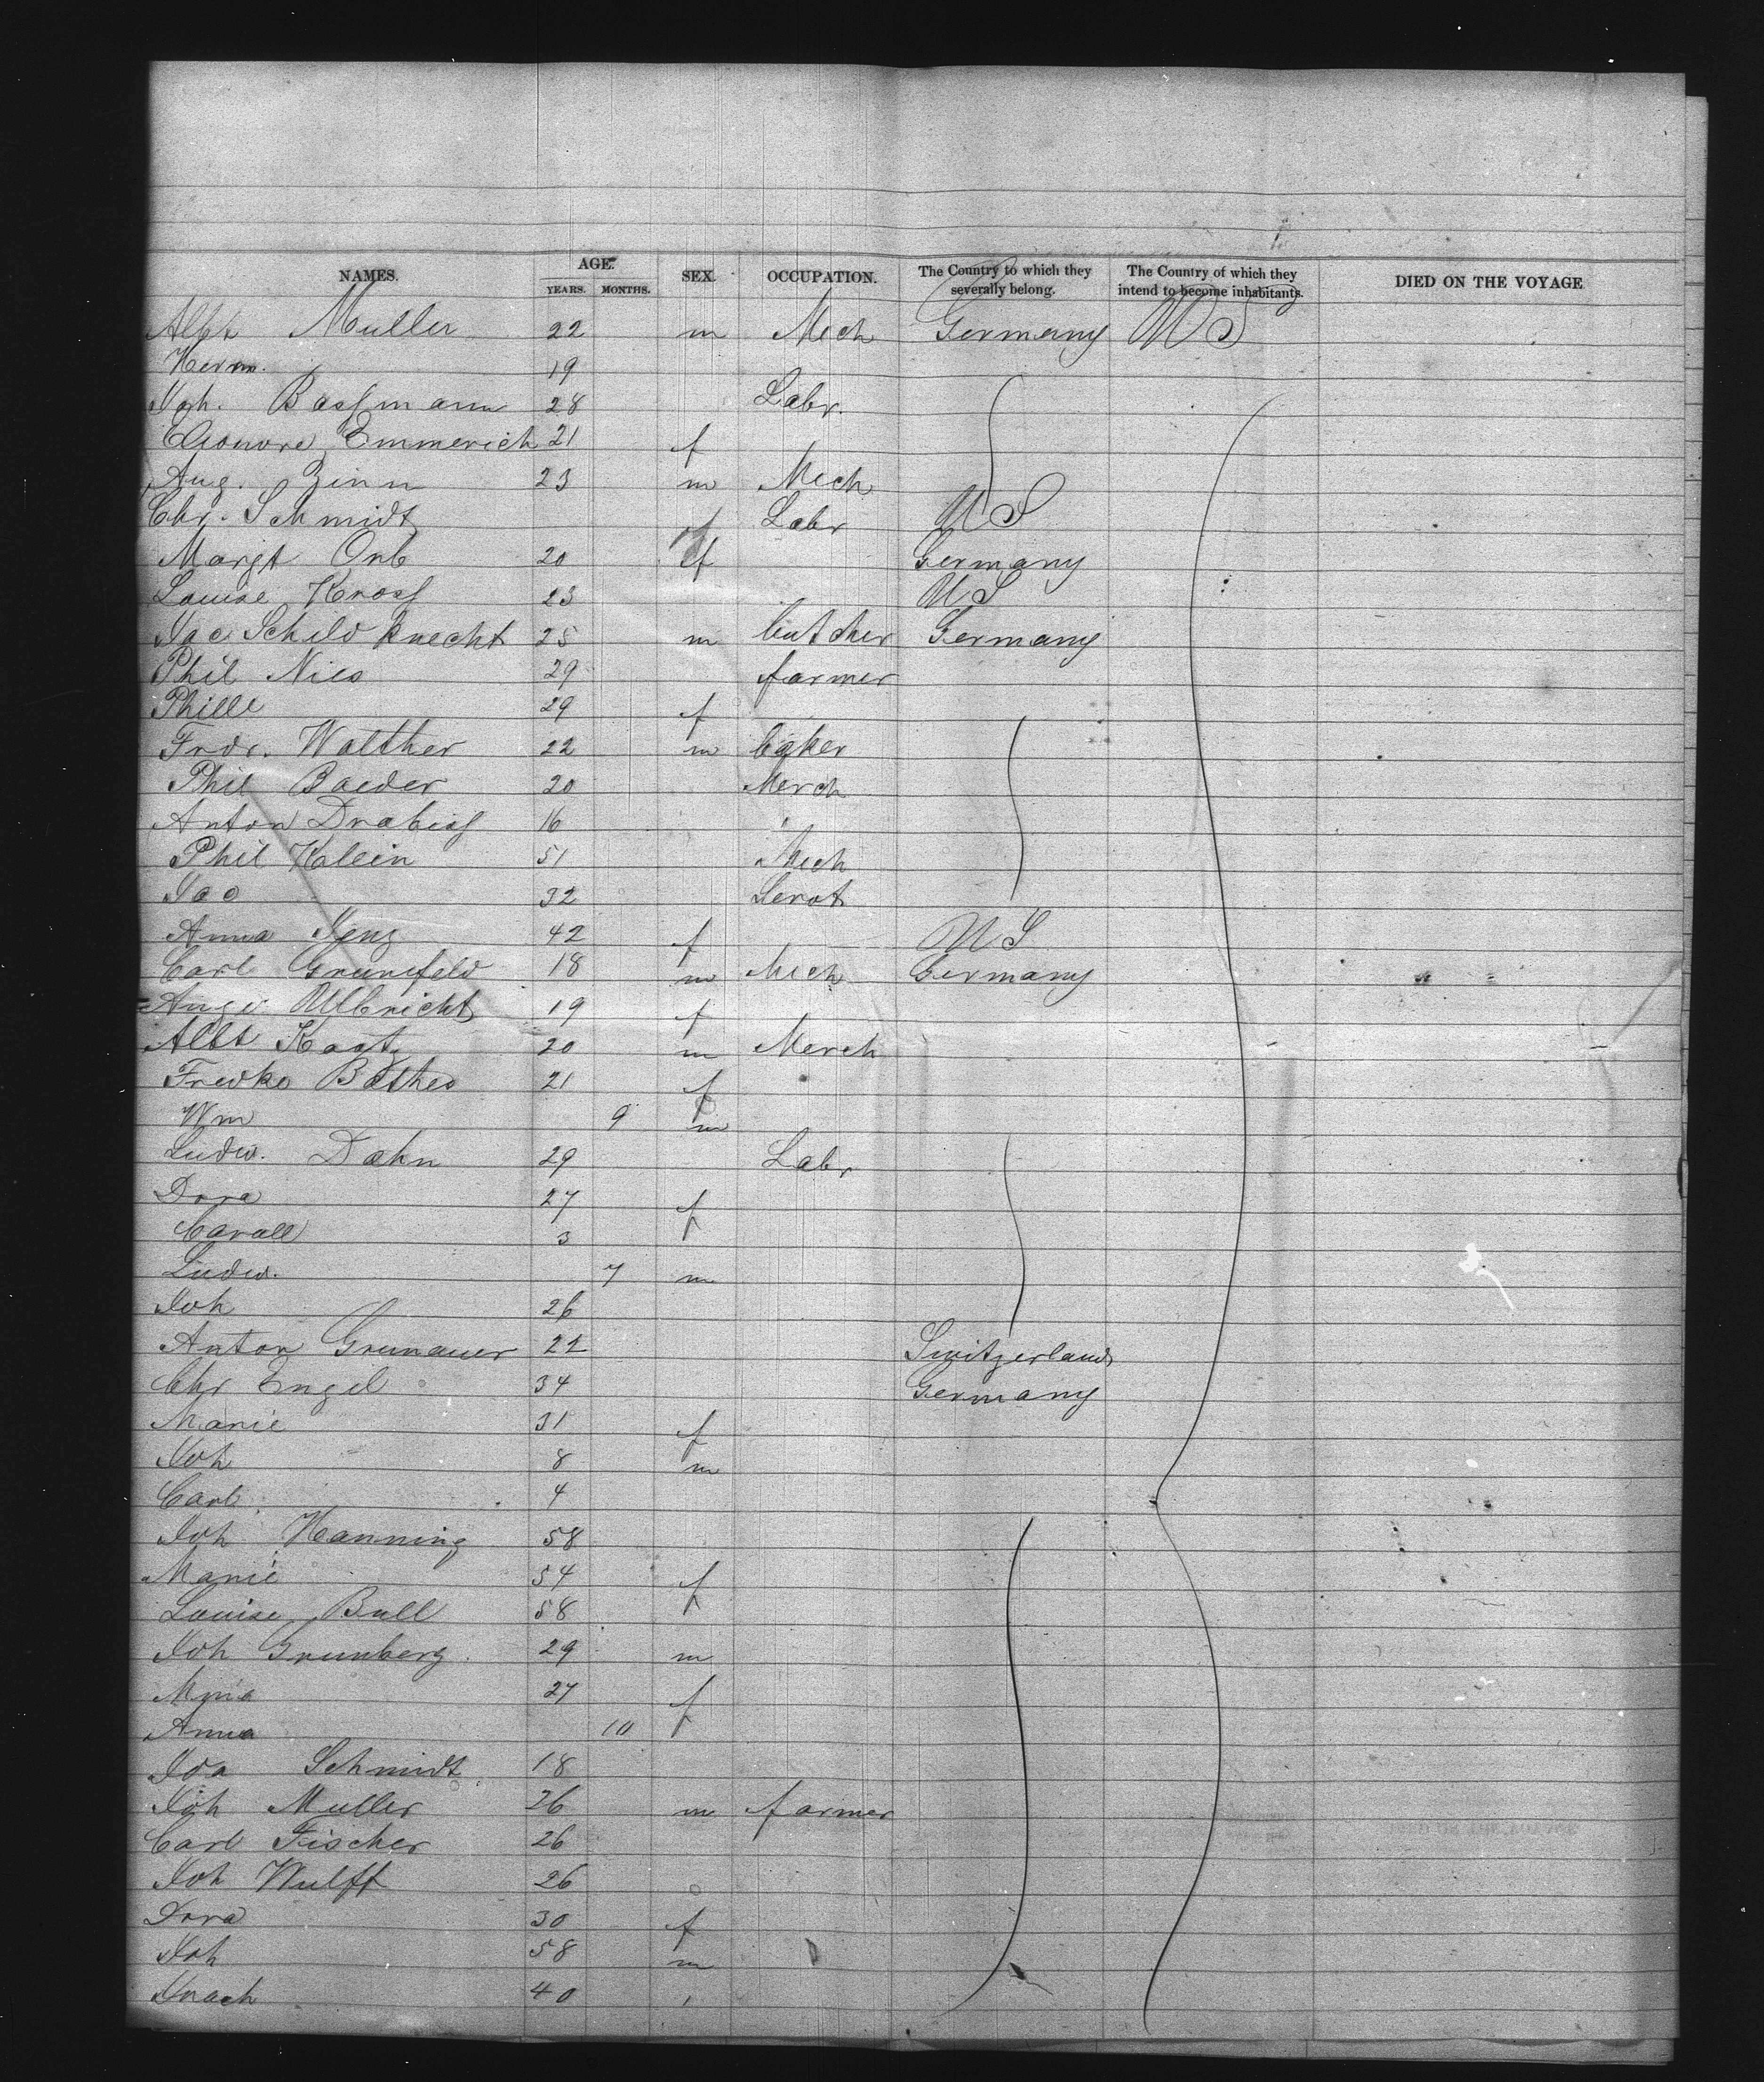 NAMES. AGE. SEX. OCCUPATION. The Country to which they severally belong. The Country of which they intend to become inhabitants. DIED ON THE VOYAGE
YEARS. MONTHS.
Albt Muller 22 m Mech Germany US
Herm. 19
Joh. Bassmann 28 Labr.
Eleonore Emmerich 21 f
Aug. Zinn 23 m Mech
Chr. Schmidt Labr US
Margt Orb 20 f Germany
Louise Kross 23 US
Jac Schildknecht 25 m butcher Germany
Phil Nies 29 farmer
Phille 29 f
Frdr. Walther 22 m baker
Phil Baeder 20 Merch
Anton Drabiss 16 "
Phil Klein 51 Mech
Jac 32 Servt
Anna 42 f US
Carl Grunefeld 18 m Mech Germany
Ulbricht 19 f
Albt Kaatz 20 m Merch
Fredke Bothes 21 f
Wm 9 m
Ludw. Dahn 29 Labr
Dora 27 f
Caroll 3 f
Ludw. 7 m
Joh 26
Anton Grunauer 22 Switzerland
Chr Engel 34 Germany
Marie 31 f
Joh 8 m
Carl 4
Joh Hanning 58
Marie 54 f
Louise Bull 58 f
Joh Grunberg 29 m
27 f
Anna 10 f
Ida Schmidt 18
Joh Muller 26 m farmer
Carl Fischer 26
Joh Wulff 26
Dora 30 f
Joh 58 m
40